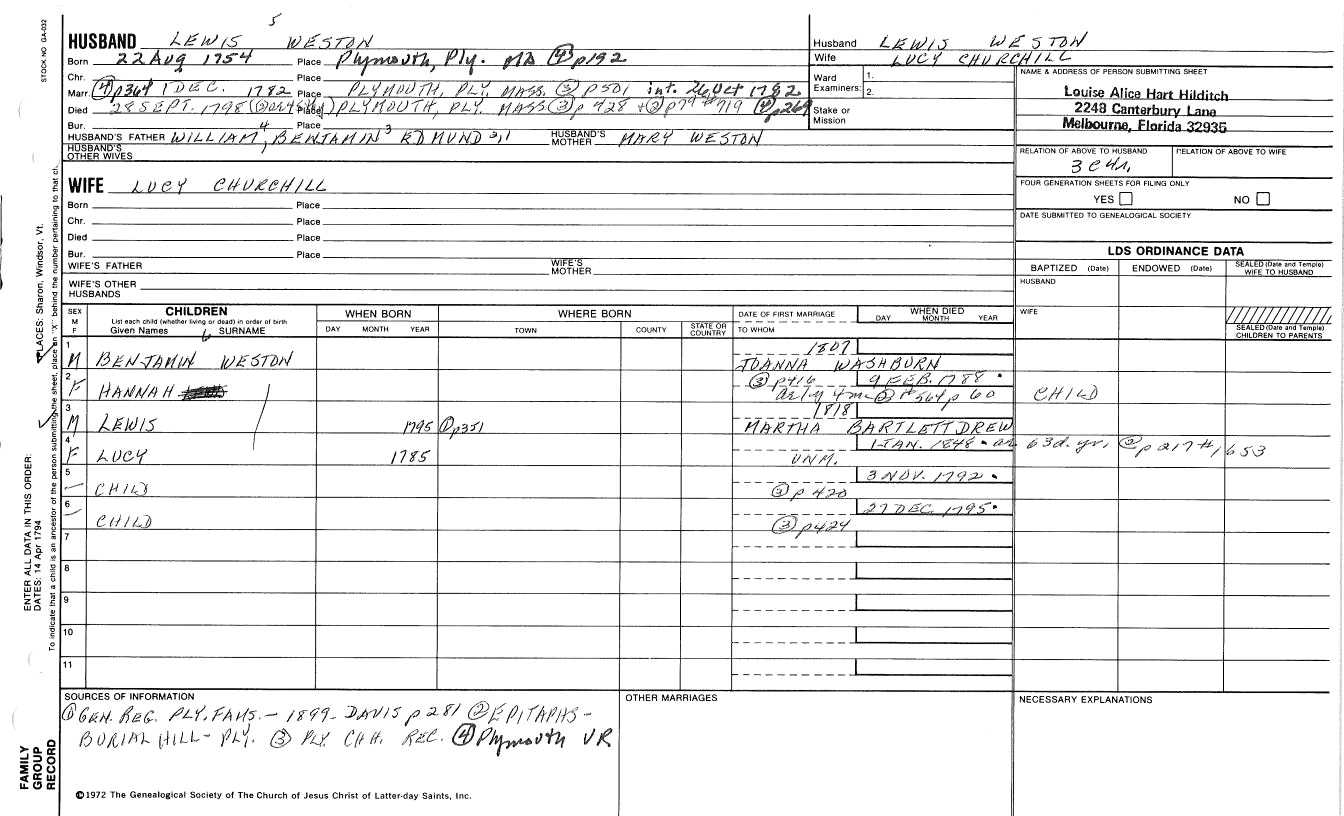 STOCK NO GA-032
5
HUSBAND LEWIS WESTON
Born 22 Aug 1754 Place Plymouth, Ply. MA ④ p192
Chr. Place
Marr. ④ p364 1 DEC. 1782 Place PLYMOUTH, PLY, MASS. ③ p501 int. 26 Oct 1782
Died 28 SEPT. 1798 Place PLYMOUTH, PLY. MASS ③ p 428 + ② p 79 #719 ④ p269
Bur. Place
HUSBAND'S FATHER WILLIAM 4, BENJAMIN 3 EDMUND 2,1 HUSBAND'S MOTHER MARY WESTON
HUSBAND'S OTHER WIVES
Husband LEWIS WESTON
Wife LUCY CHURCHILL
Ward 1.
Examiners: 2.
Stake or Mission
NAME & ADDRESS OF PERSON SUBMITTING SHEET
Louise Alice Hart Hilditch
2248 Canterbury Lane
Melbourne, Florida 32935
RELATION OF ABOVE TO HUSBAND RELATION OF ABOVE TO WIFE
3 C 4 r.
FOUR GENERATION SHEETS FOR FILING ONLY
YES NO
DATE SUBMITTED TO GENEALOGICAL SOCIETY
WIFE LUCY CHURCHILL
Born Place
Chr. Place
Died Place
Bur. Place
WIFE'S FATHER WIFE'S MOTHER
WIFE'S OTHER HUSBANDS
LDS ORDINANCE DATA
BAPTIZED (Date) ENDOWED (Date) SEALED (Date and Temple) WIFE TO HUSBAND
HUSBAND
WIFE
SEALED (Date and Temple) CHILDREN TO PARENTS
SEX M F
CHILDREN
List each child (whether living or dead) in order of birth
Given Names 6 SURNAME
WHEN BORN
DAY MONTH YEAR
WHERE BORN
TOWN COUNTY STATE OR COUNTRY
DATE OF FIRST MARRIAGE
TO WHOM
WHEN DIED
DAY MONTH YEAR
1 1807
M BENJAMIN WESTON JOANNA WASHBURN
2 ③ p416 9 FEB. 1788
F HANNAH ae 1 y 4 m ② #564 p 60 CHILD
3 1818
M LEWIS 1795 ① p351 MARTHA BARTLETT DREW
4 1 JAN. 1848 ae 63d. yr, ② p 217 #1653
F LUCY 1785 UNM.
5 3 NOV. 1792
CHILD ③ p 420
6 27 DEC. 1795
CHILD ③ p424
7
8
9
10
11
SOURCES OF INFORMATION
① GEN. REG. PLY. FAMS. - 1899 - DAVIS p 281 ② EPITAPHS -
BURIAL HILL - PLY. ③ PLY. CHH. REC. ④ Plymouth VR
OTHER MARRIAGES
NECESSARY EXPLANATIONS
©1972 The Genealogical Society of The Church of Jesus Christ of Latter-day Saints, Inc.
FAMILY GROUP RECORD
ENTER ALL DATA IN THIS ORDER:
DATES: 14 Apr 1794
PLACES: Sharon, Windsor, Vt.
To indicate that a child is an ancestor of the person submitting the sheet, place an "X" behind the number pertaining to that ch